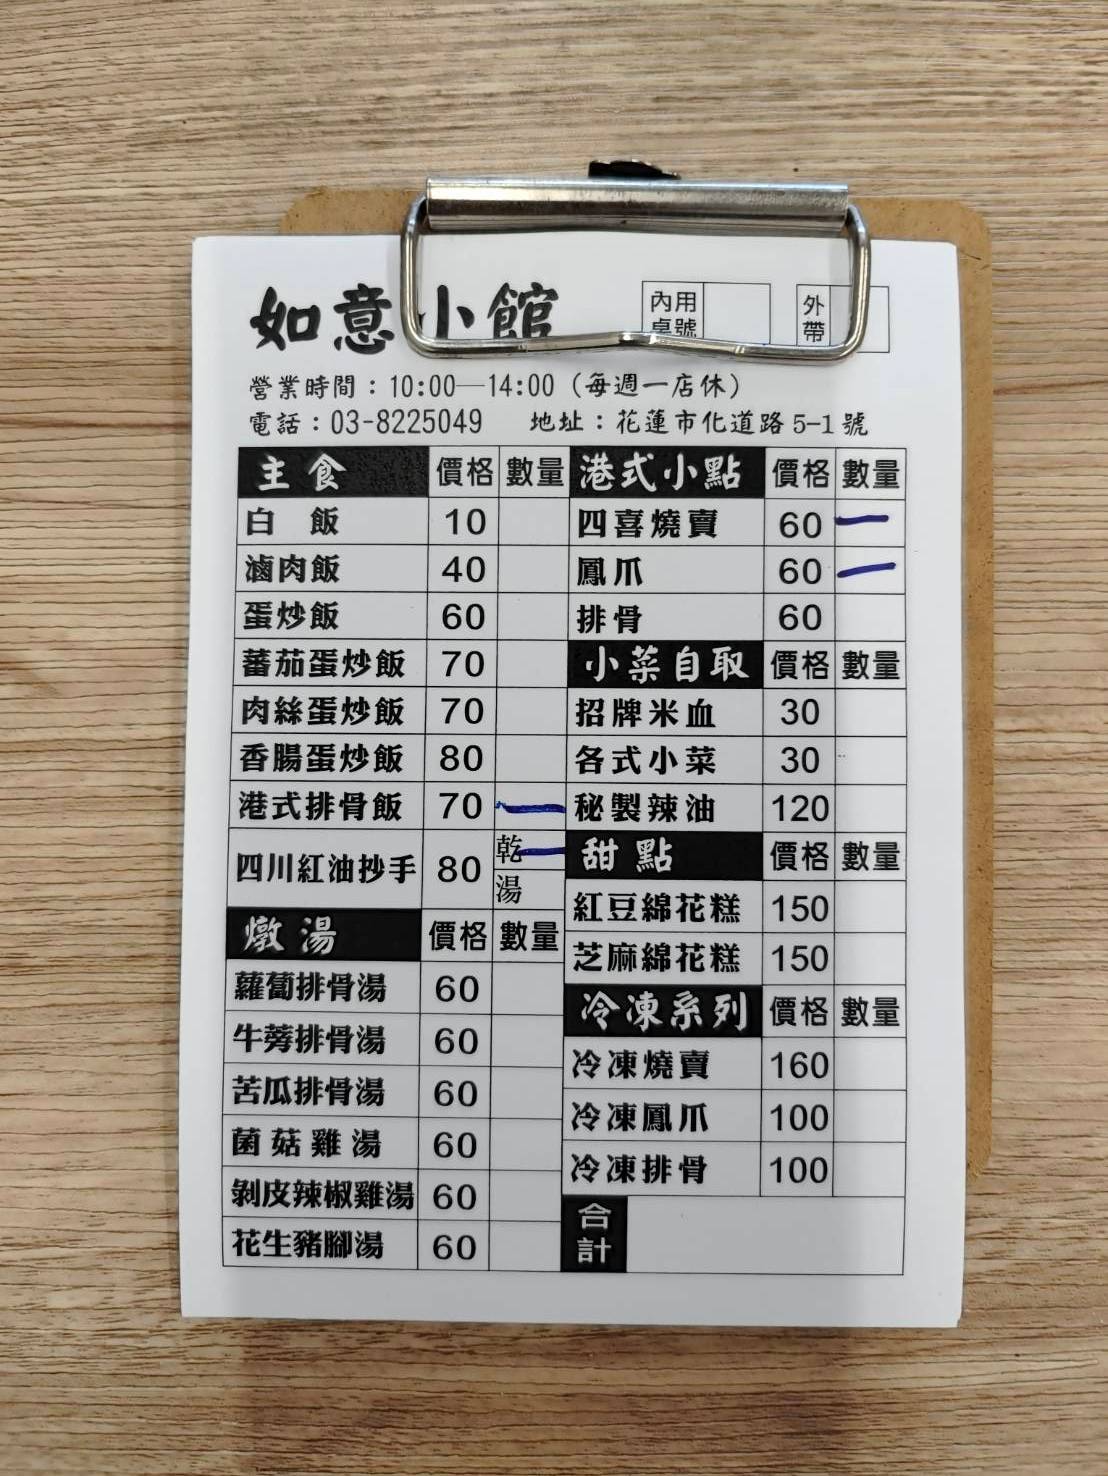 如意小館
內用桌號
外帶
營業時間：10:00—14:00（每週一店休）
電話：03-8225049 地址：花蓮市化道路5-1號
主食 價格 數量
白飯 10
滷肉飯 40
蛋炒飯 60
蕃茄蛋炒飯 70
肉絲蛋炒飯 70
香腸蛋炒飯 80
港式排骨飯 70 一
四川紅油抄手 80 乾 一
湯
燉湯 價格 數量
蘿蔔排骨湯 60
牛蒡排骨湯 60
苦瓜排骨湯 60
菌菇雞湯 60
剝皮辣椒雞湯 60
花生豬腳湯 60
港式小點 價格 數量
四喜燒賣 60 一
鳳爪 60 一
排骨 60
小菜自取 價格 數量
招牌米血 30
各式小菜 30
秘製辣油 120
甜點 價格 數量
紅豆綿花糕 150
芝麻綿花糕 150
冷凍系列 價格 數量
冷凍燒賣 160
冷凍鳳爪 100
冷凍排骨 100
合計